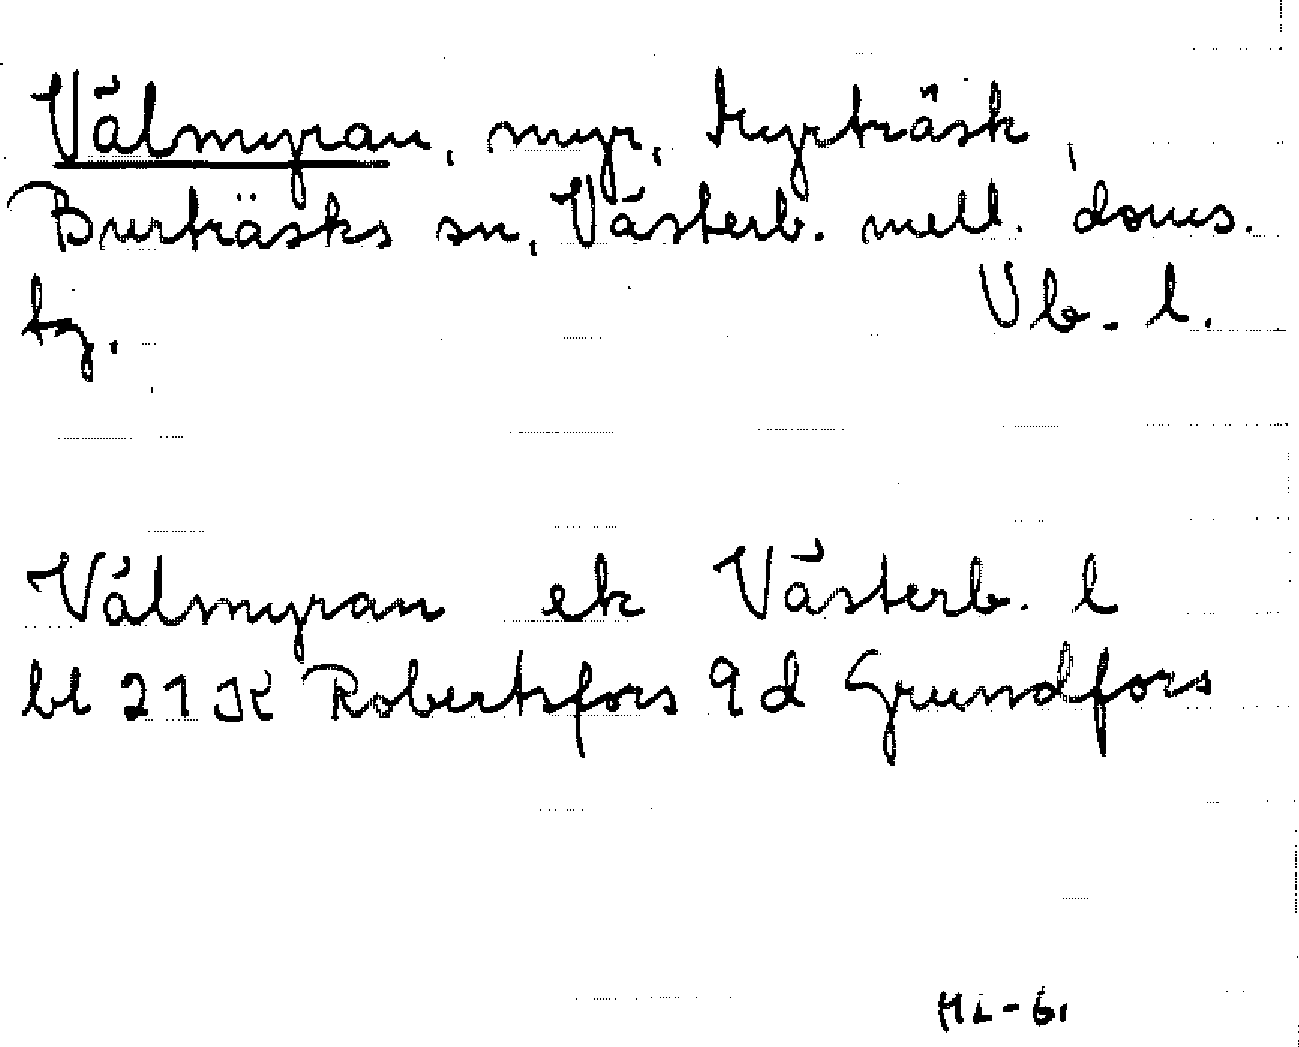 Välmyran, myr, Hyrträsk,
Burträsks sn, Västerb. mell. doms.
tg. Vb. l.
Välmyran ek Västerb. l
bl 21K Robertsfors 9d Grundfors
HL-61